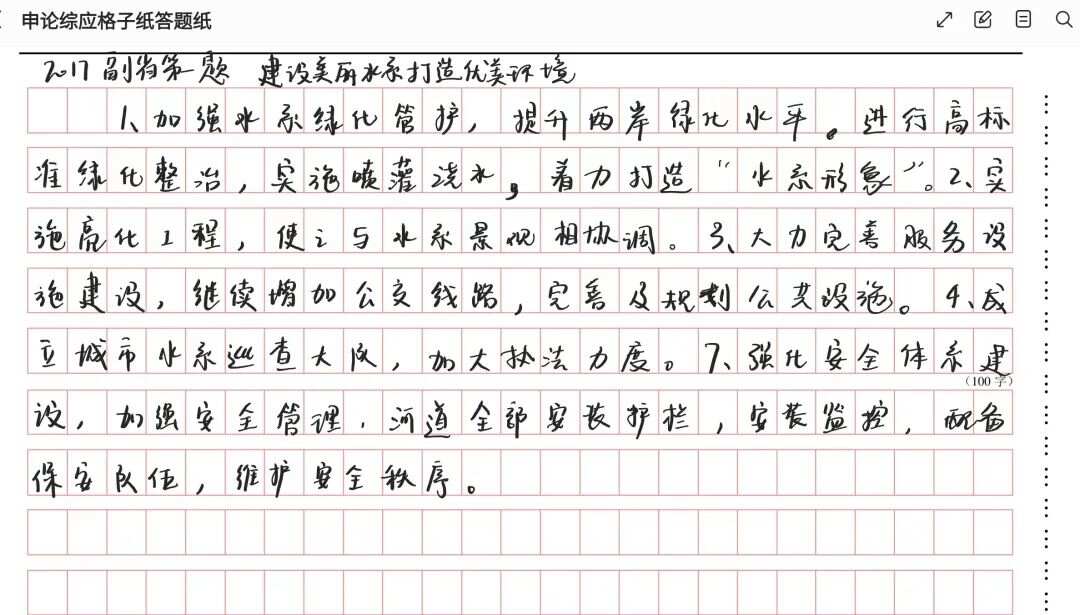 申论综应格子纸答题纸
2017副省第一题 建设美丽水系打造优美环境
1、加强水系绿化管护，提升两岸绿化水平。进行高标
准绿化整治，实施喷灌浇水，着力打造“水系形象”。2、实
施亮化工程，使之与水系景观相协调。3、大力完善服务设
施建设，继续增加公交线路，完善及规划公共设施。4、成
立城市水系巡查大队，加大执法力度。7、强化安全体系建
（100字）
设，加强安全管理，河道全部安装护栏，安装监控，配备
保安队伍，维护安全秩序。